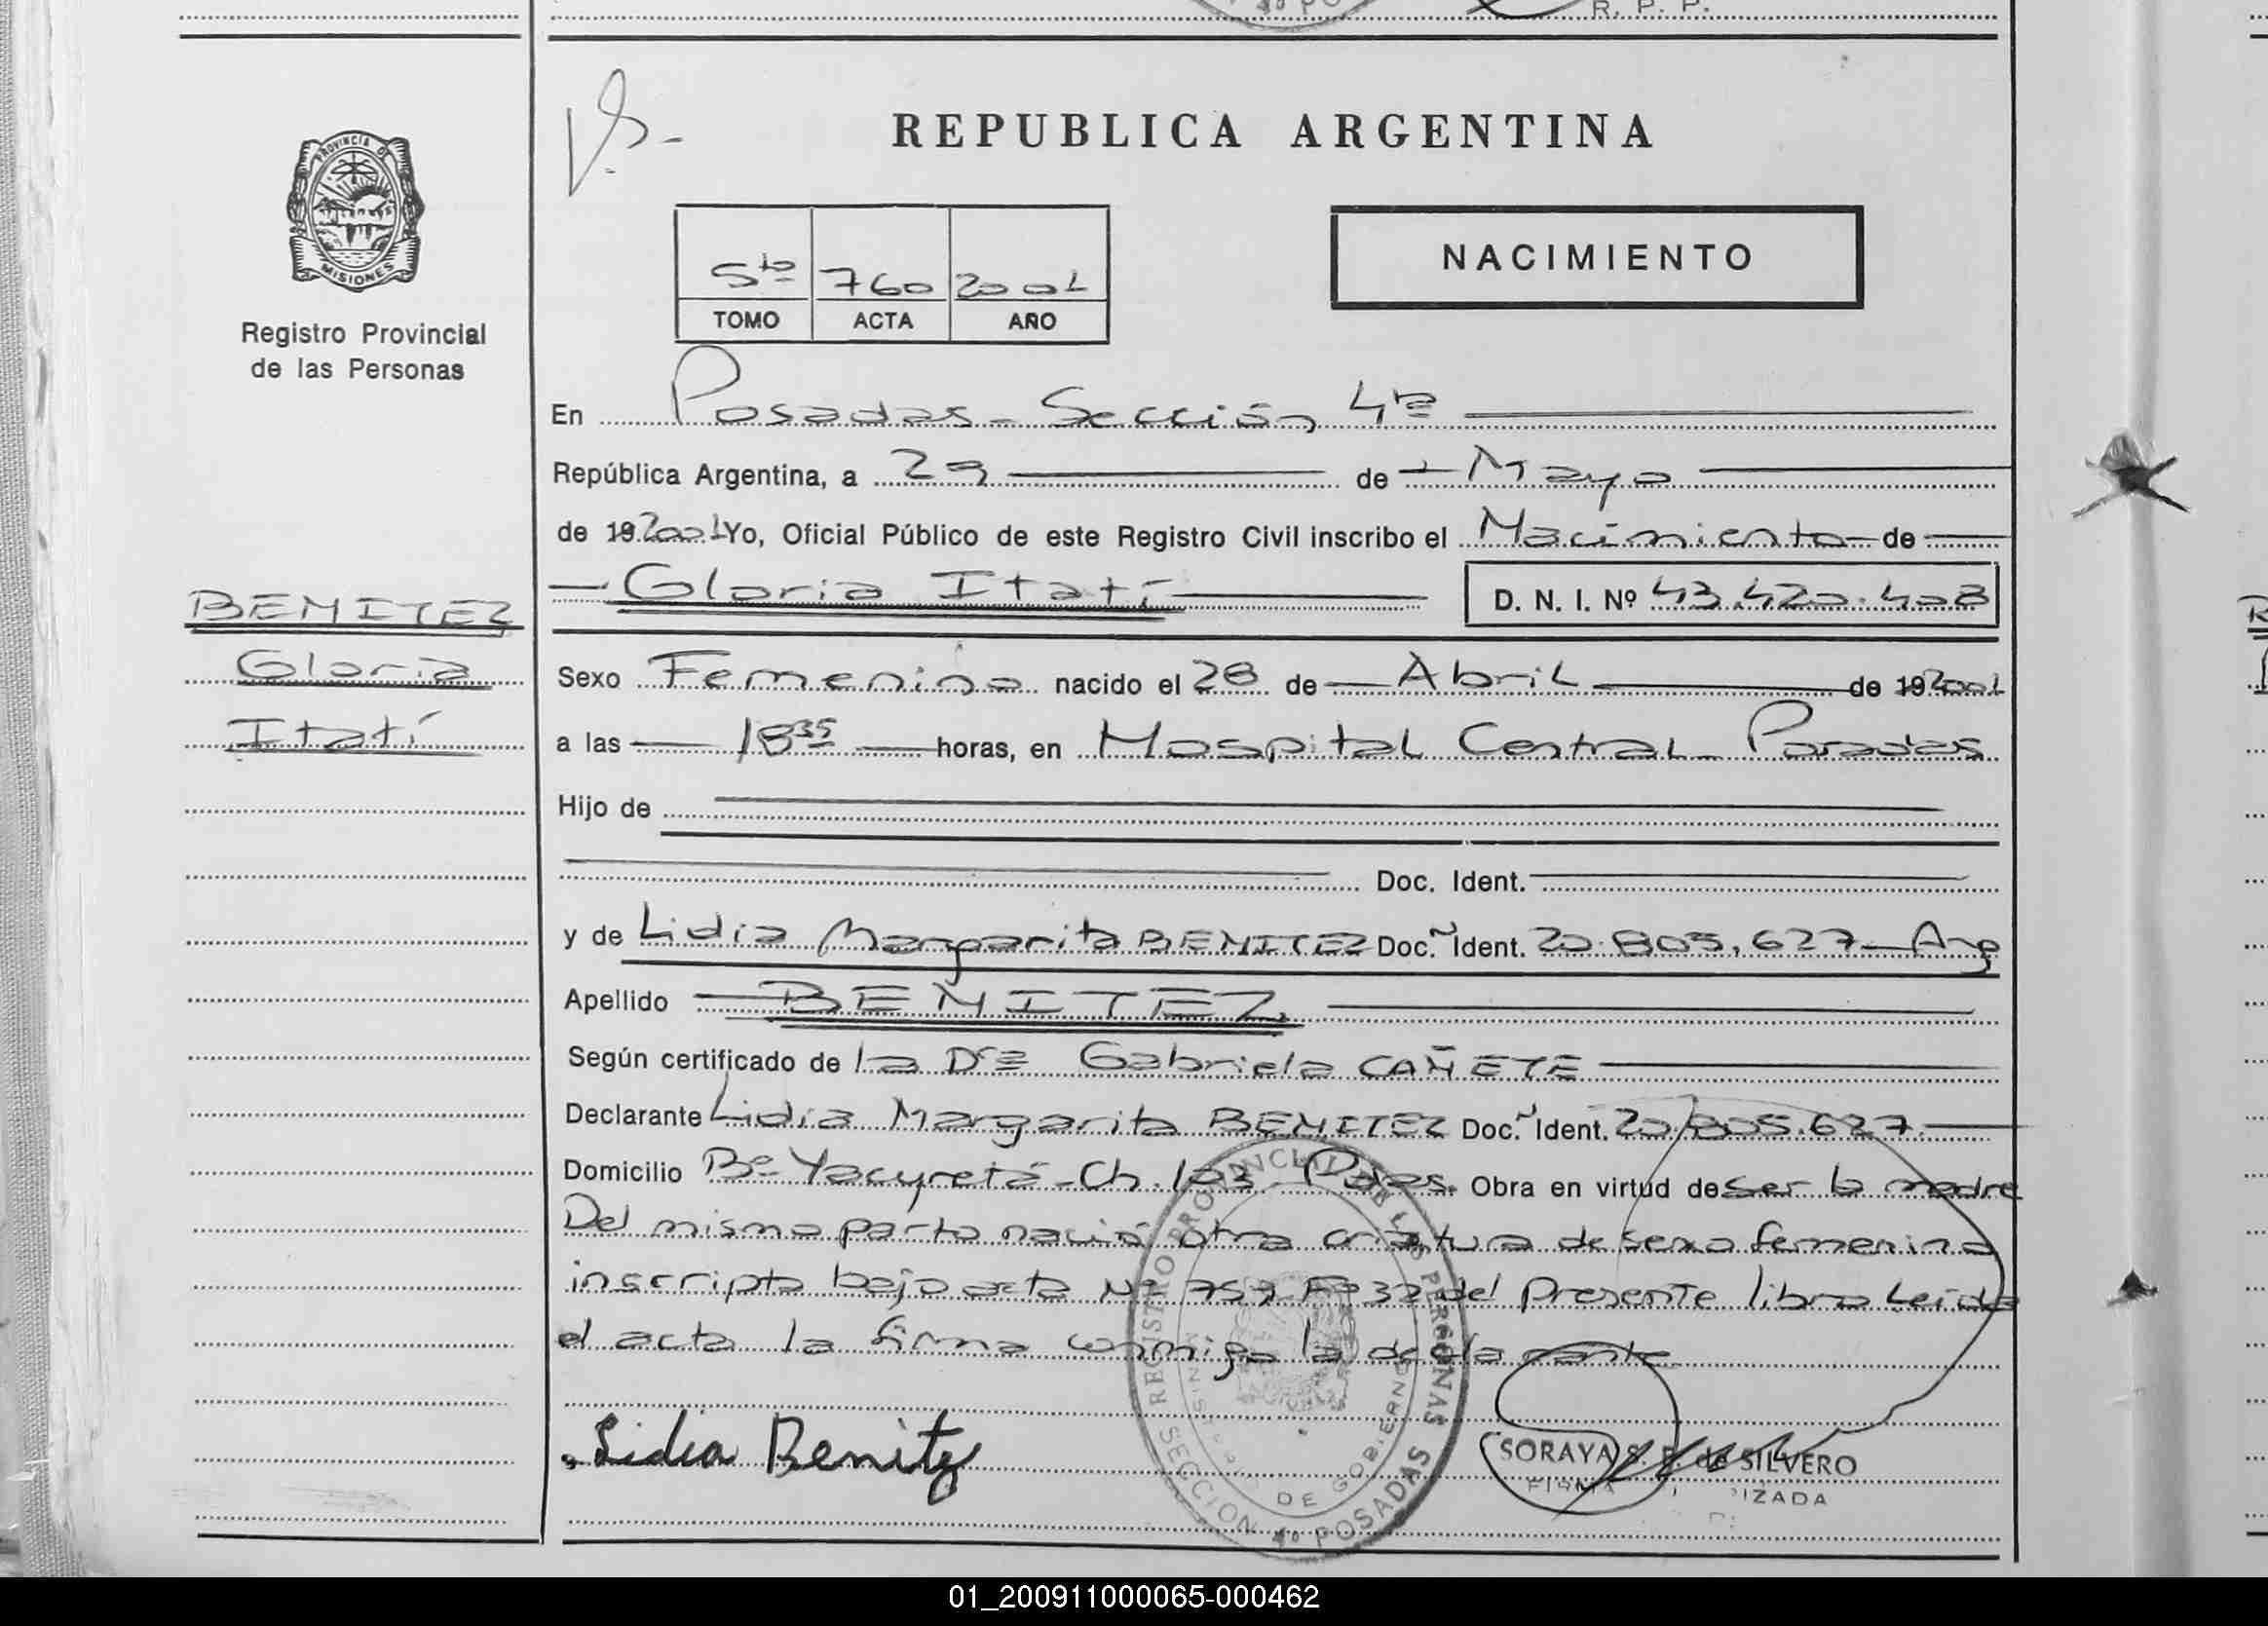 R. P. P.
REPUBLICA ARGENTINA
PROVINCIA DE
MISIONES
Registro Provincial
de las Personas
NACIMIENTO
5to 760 2001
TOMO ACTA AÑO
En Posadas - Sección 4ta
República Argentina, a 29 de Mayo
de 19 2001 Yo, Oficial Público de este Registro Civil inscribo el Nacimiento de
Gloria Itatí D. N. I. Nº 43.420.408
BENITEZ
Gloria
Itatí
Sexo Femenino nacido el 28 de Abril de 19 2001
a las 18 35 horas, en Hospital Central - Posadas
Hijo de
Doc. Ident.
y de Lidia Margarita BENITEZ Doc. Ident. 20.805.627 - Arg
Apellido BENITEZ
Según certificado de la Dra Gabriela CAÑETE
Declarante Lidia Margarita BENITEZ Doc. Ident. 20.805.627.
Domicilio Bº Yacyretá - Ch. 103 - Pdas. Obra en virtud de ser la madre
Del mismo parto nació otra criatura de sexo femenino
inscripta bajo acta Nº 759 Fº 37 del presente libro Leída
el acta la firma conmigo la declarante
Lidia Benitez
REGISTRO PROVINCIAL DE LAS PERSONAS
MINISTERIO DE GOBIERNO
SECCION 4º POSADAS
SORAYA S. F. de SILVERO
FIRMA
01_200911000065-000462